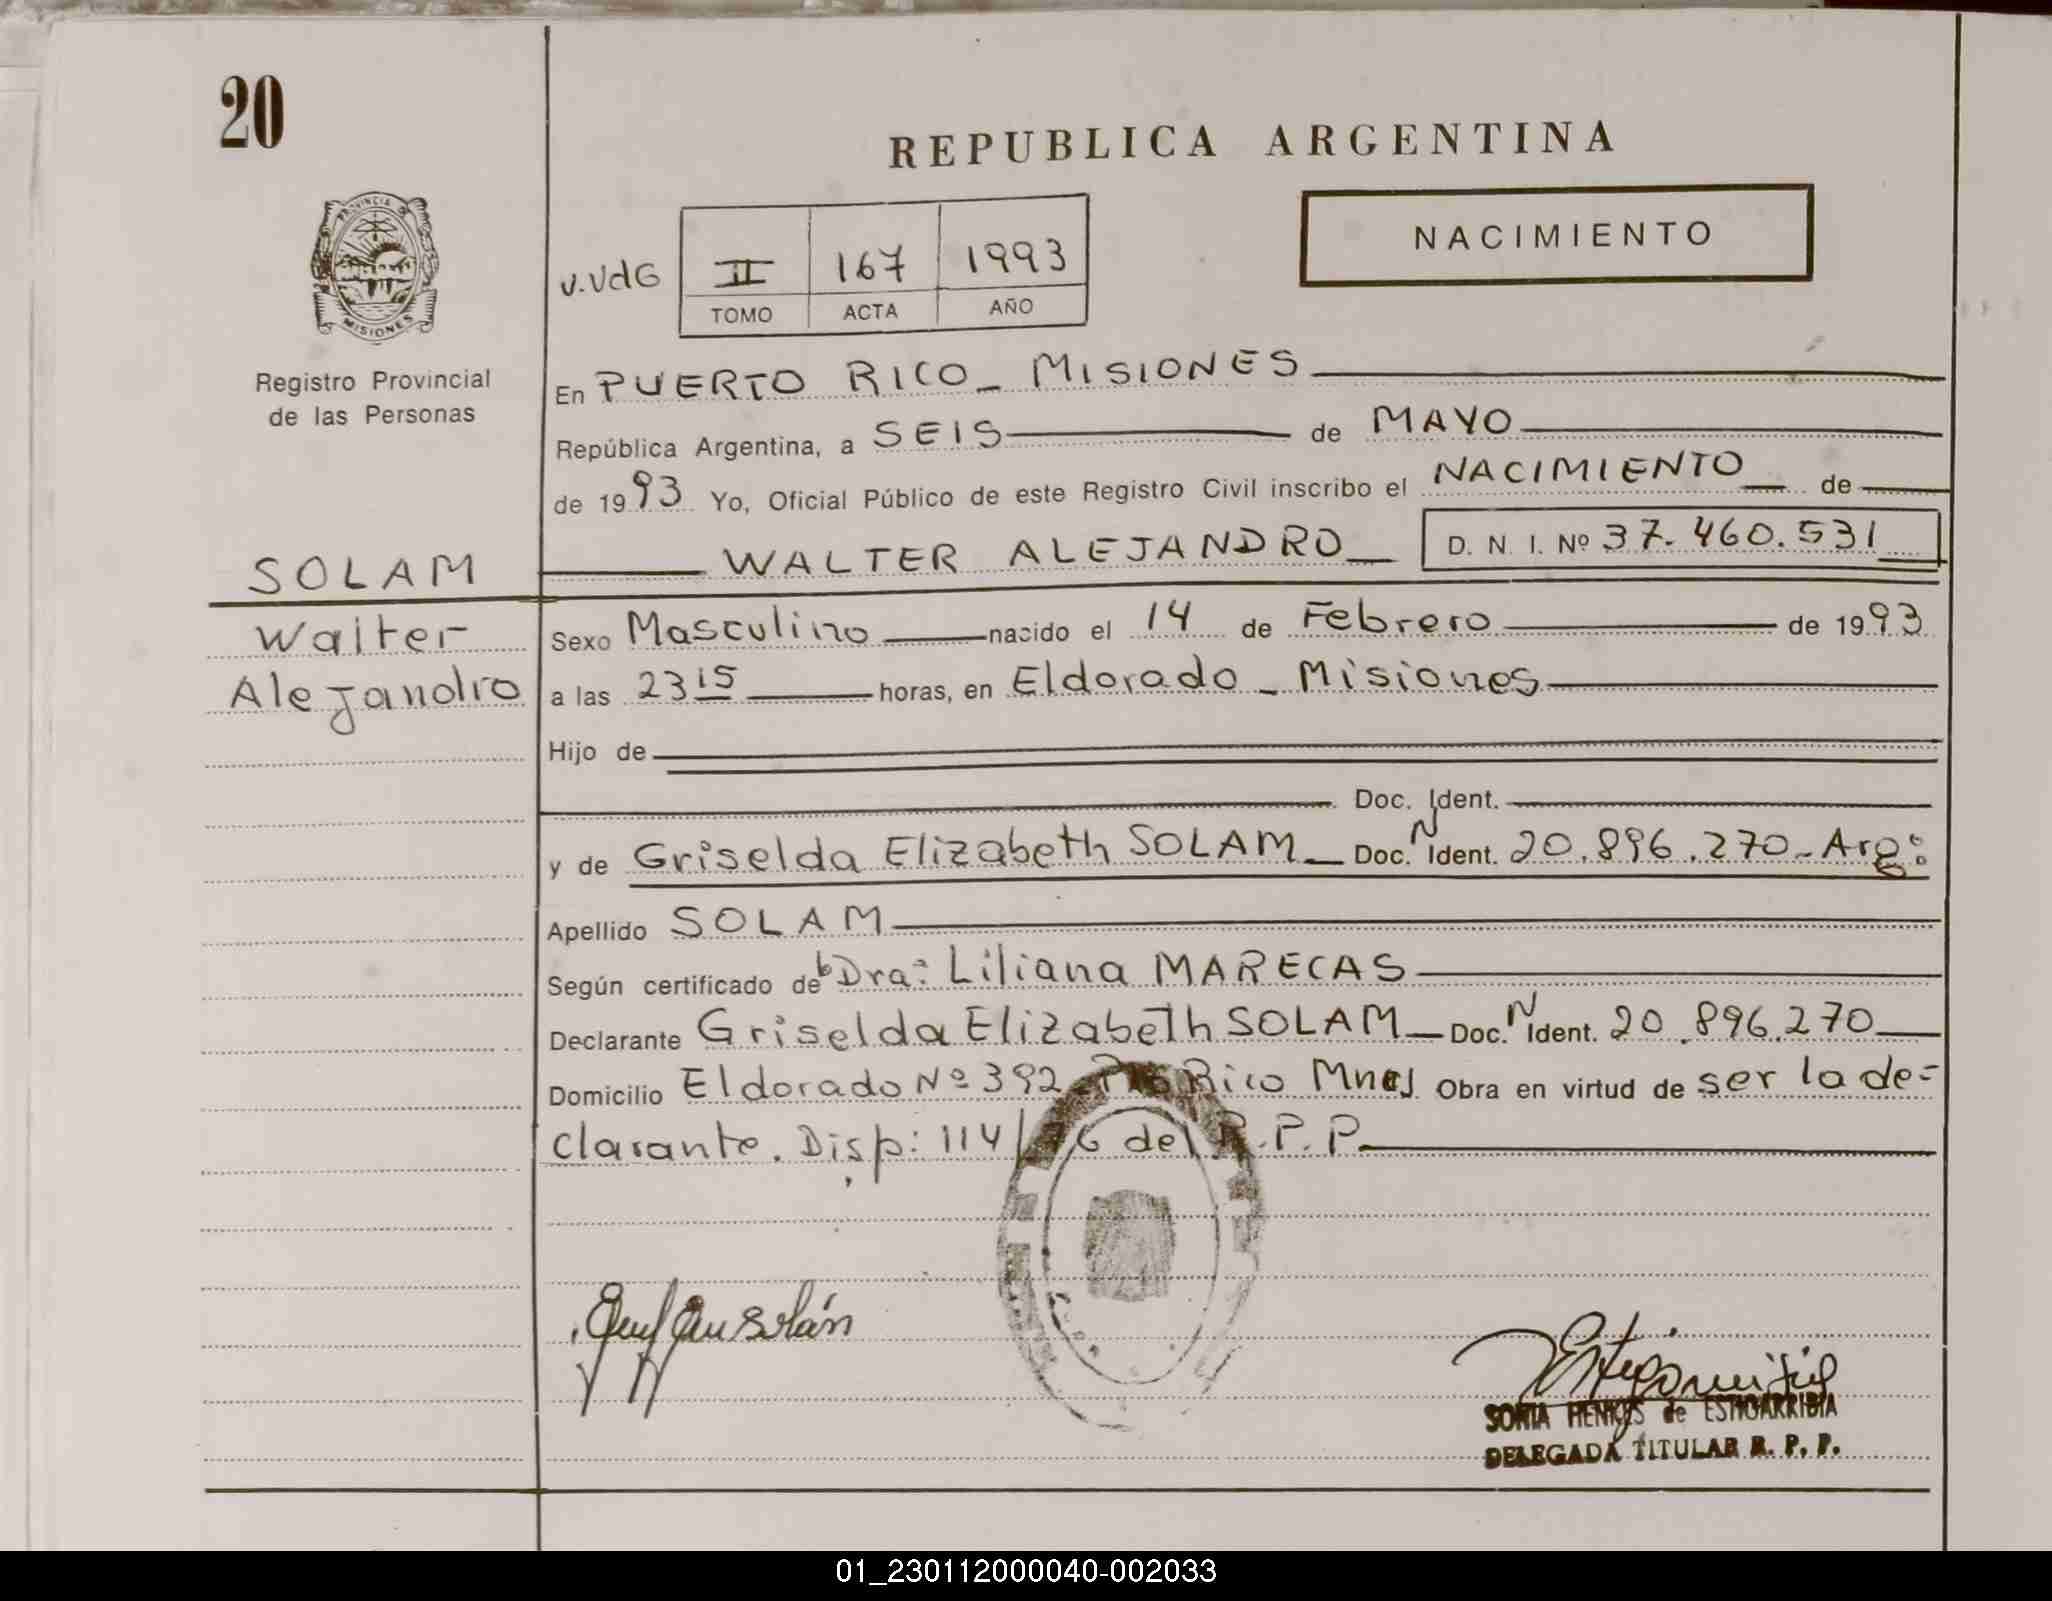 20
REPUBLICA ARGENTINA
PROVINCIA DE
MISIONES
Registro Provincial
de las Personas
NACIMIENTO
v.VdG
II 167 1993
TOMO ACTA AÑO
En PUERTO RICO_ MISIONES
República Argentina, a SEIS de MAYO
de 1993 Yo, Oficial Público de este Registro Civil inscribo el NACIMIENTO de
WALTER ALEJANDRO D. N. I. Nº 37.460.531
SOLAM
Walter
Alejandro
Sexo Masculino nacido el 14 de Febrero de 1993
a las 23 15 horas, en Eldorado _ Misiones
Hijo de
Doc. Ident.
y de Griselda Elizabeth SOLAM_ Doc. N Ident. 20.896.270_Arg:
Apellido SOLAM
Según certificado de Dra: Liliana MARECAS
Declarante Griselda Elizabeth SOLAM_ Doc. N Ident. 20.896.270
Domicilio Eldorado Nº 392 Rico Mnes Obra en virtud de ser la de=
clarante. Disp: 114/ del R.P.P.
Solán
SONIA HENKES de ESTIGARRIBIA
DELEGADA TITULAR R. P. P.
01_230112000040-002033